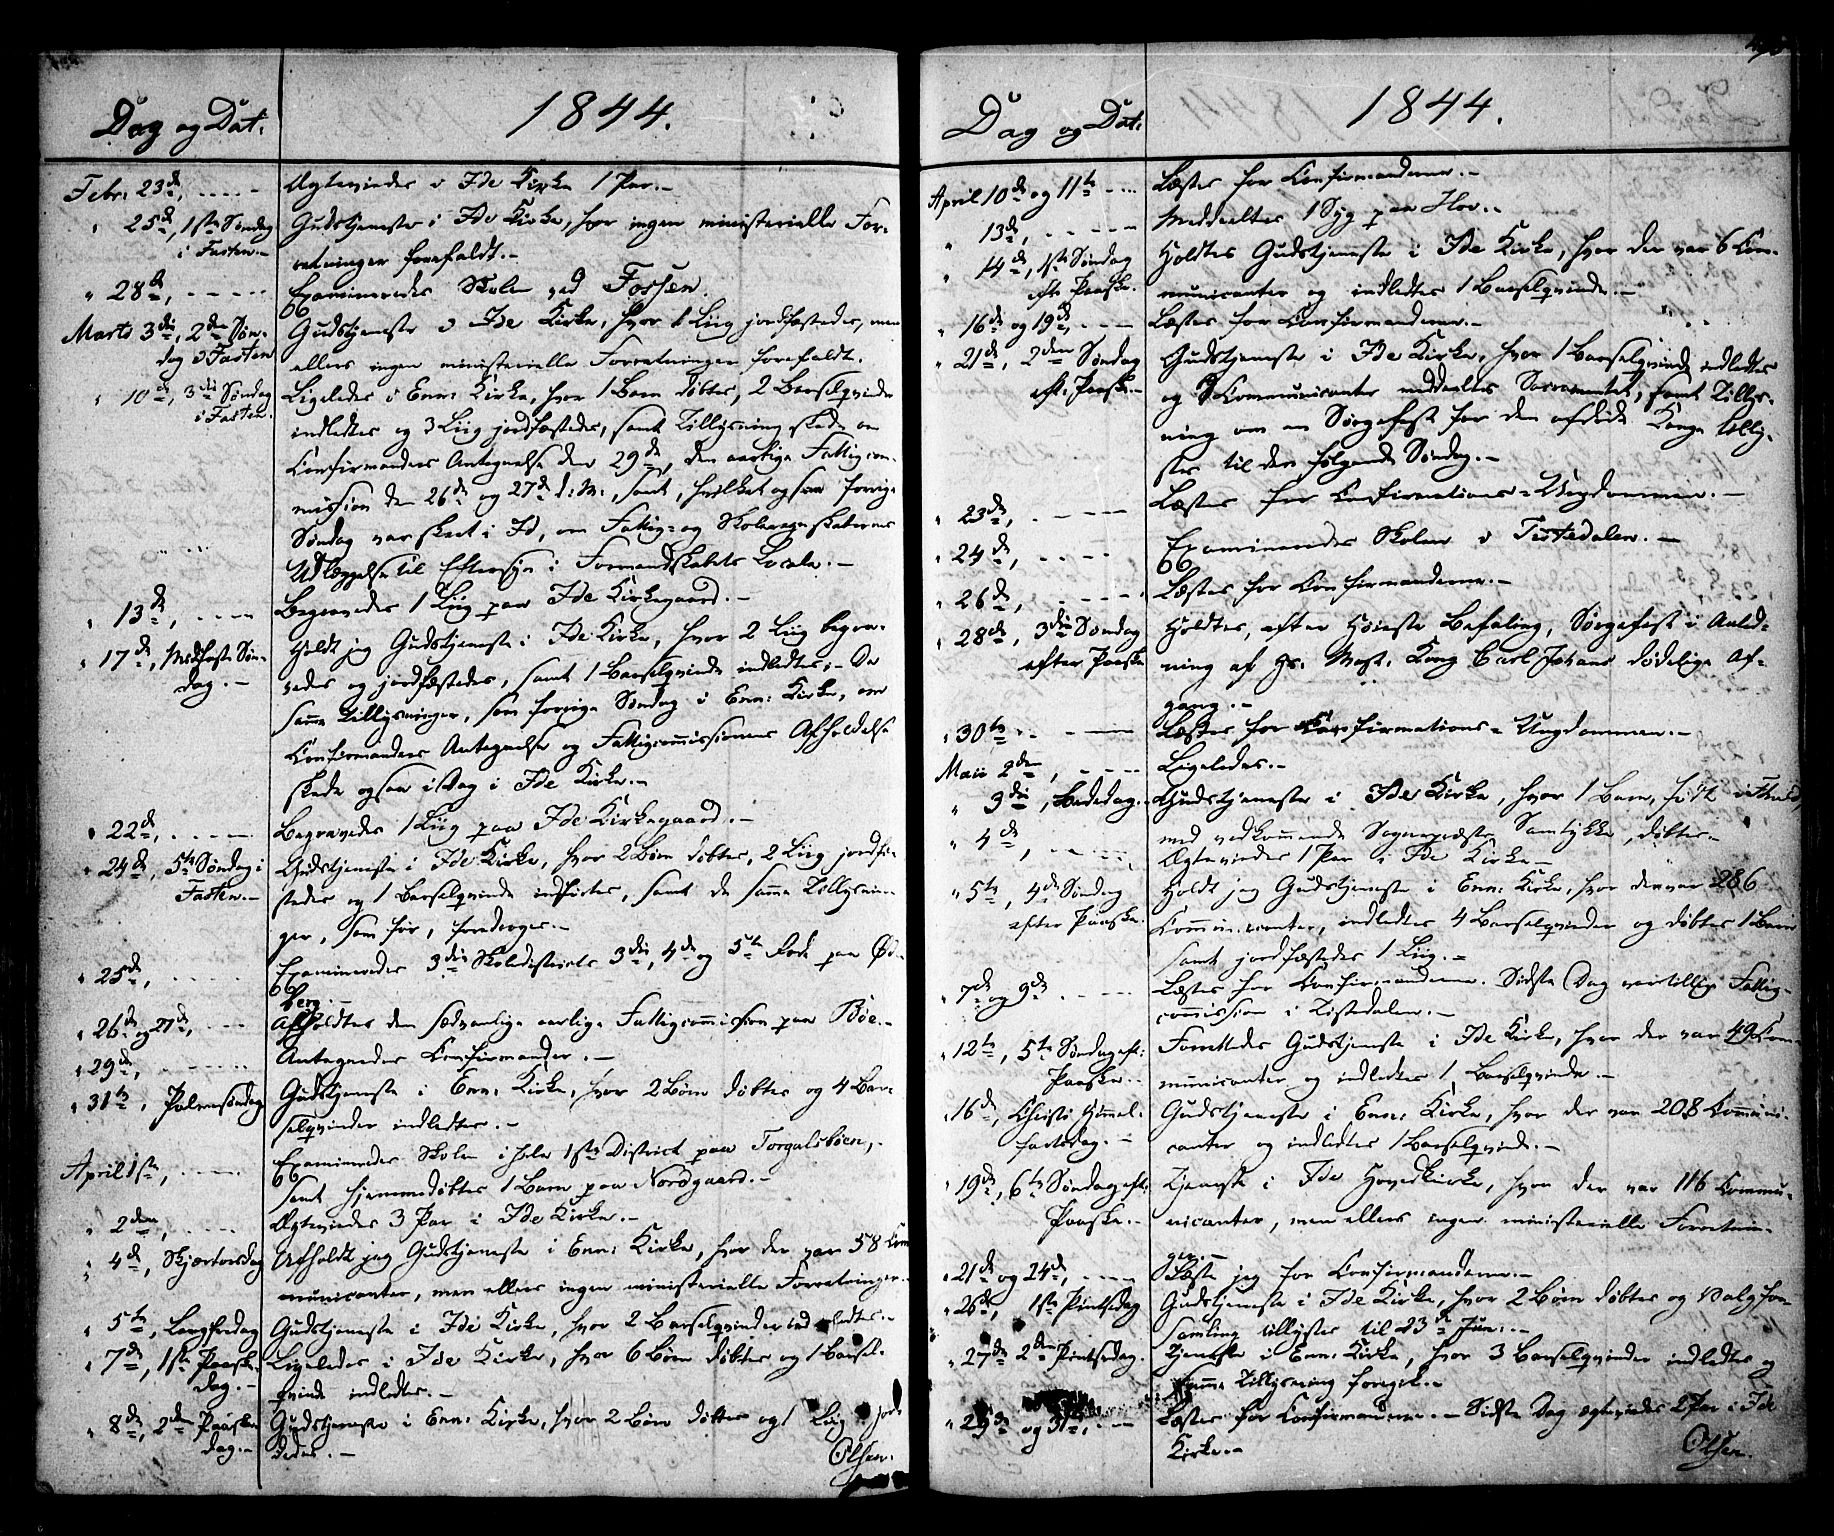 Dag og Dat: 1844.
Febr: 23de, Ægteviedes i Ide Kirke 1 Par.-
" 25de, 1ste Søndag Gudstjeneste i Ide Kirke, hvor ingen ministerielle For-
i Fasten.- retninger forefaldt.-
" 28de, Examineredes Skolen ved Fossen.
Marts 3die, 2den Søn- Gudstjeneste i Ide Kirke, hvor 1 Liig jordfæstedes, men
dag i Fasten ellers ingen ministerielle Forretninger forefaldt.
" 10de, 3die Søndag Ligeledes i Enn: Kirke, hvor 1 Barn døbtes, 2 Barselqvinder
i Fasten.- indledtes og 3 Liig jordfæstedes, samt Tillysning skede om
Confirmanders Antagelse den 29de, den aarlige Fattigcom-
mission den 26de og 27de d: M:, samt, hvilket ogsaa forrige
Søndag var skeet i Id, om Fattig- og Skoleregnskabernes
Udlæggelse til Eftersyn i Formandskabets Locale.-
" 13de, Begravedes 1 Liig paa Ide Kirkegaard.-
" 17de, Midfaste Søn- Holdt jeg Gudstjeneste i Ide Kirke, hvor 2 Liig begra-
dag.- vedes og jordfæstedes, samt 1 Barselqvinde indledtes;- De
samme Tillysninger, som forrige Søndag i Enn: Kirke, om
Confirmanders Antagelse og Fattigcommissionens Afholdelse
skede ogsaa i Dag i Ide Kirke.-
" 22de, Begravedes 1 Liig paa Ide Kirkegaard.-
" 24de, 5te Søndag i Gudstjeneste i Ide Kirke, hvor 2 Børn døbtes, 2 Liig jordfæ-
Fasten.- stedes og 1 Barselqvinde indledtes, samt de samme Tillysnin-
ger, som før, foredroges.-
" 25de, Examineredes 3die Skoledistricts 3die, 4de og 5te Rode paa Ød-
berg.-
" 26de og 27de, Afholdtes den sædvanlige aarlige Fattigcommission paa Bøe.-
" 29de, Antagedes Confirmander.-
" 31te, Palmesøndag Gudstjeneste i Enn: Kirke, hvor 2 Børn døbtes og 4 Bar-
selqvinder indledtes.-
April 1ste, Examineredes Skolen i hele 1ste District paa Torgalsbøen,
samt hjemmedøbtes 1 Barn paa Nordgaard.-
" 2den, Ægteviedes 3 Par i Ide Kirke.-
" 4de, Skjærtorsdag Afholdt jeg Gudstjeneste i Enn: Kirke, hvor der var 58 Com
municanter, men ellers ingen ministerielle Forretninger.
" 5te, Langfredag Gudstjeneste i Ide Kirke, hvor 2 Barselqvinder indledtes.-
" 7de, 1ste Paaske- Ligeledes i Ide Kirke, hvor 6 Børn døbtes og 1 Barsel-
dag.- qvinde indledtes.-
" 8de, 2den Paaske- Gudstjeneste i Enn: Kirke, hvor 2 Børn døbtes og 1 Liig
dag.-
Olsen.
Dag og Dat: 1844.
April 10de og 11te Læstes for Confirmanderne.-
" 13de, Meddeeltes 1 Syg paa Hov.-
" 14de, 1ste Søndag Holdtes Gudstjeneste i Ide Kirke, hvor der var 6 Com-
eft: Paaske. municanter og indledtes 1 Barselqvinde.-
" 16de og 19de, Læstes for Confirmanderne.-
" 21de, 2den Søndag Gudstjeneste i Ide Kirke, hvor 1 Barselqvinde indledtes
eft: Paaske.- og Communicanter meddeeltes Sacramentet, samt Tillys-
ning om en Sørgefest for den afdøde Konge tilly-
stes til den følgende Søndag.-
" 23de, Læstes for Confirmations-Ungdommen.-
" 24de, Examineredes Skolen i Tistedalen.-
" 26de, Læstes for Confirmanderne.-
" 28de, 3die Søndag Holdtes, efter Høieste Befaling, Sørgefest i Anled-
efter Paaske ning af Hs: Majt: Kong Carl Johans dødelige Af-
gang.-
" 30te Læstes for Confirmations-Ungdommen.-
Maii 2den, Ligeledes.-
" 3die, Bededag. Gudstjeneste i Ide Kirke, hvor 1 Barn, født i
med vedkommende Sognepræsts Samtykke, døbtes.-
" 4de, Ægteviedes 1 Par i Ide Kirke.-
" 5te, 4de Søndag Holdt jeg Gudstjeneste i Enn: Kirke, hvor der var 286
efter Paaske. Communicanter, indledtes 4 Barselqvinder og døbtes 1 Barn
samt jordfæstedes 1 Liig.-
" 7de og 9de Læstes for Confirmanderne. Sidste Dag var tillige Fattig-
commission i Tistedalen.-
" 12te, 5te Søndag eft: Forrettedes Gudstjeneste i Ide Kirke, hvor der var 49 Com-
Paaske.. municanter og indledtes 1 Barselqvinde.-
" 16de, Christi Himmel- Gudstjeneste i Enn: Kirke, hvor der var 208 Communi-
fartsdag.- canter og indledtes 1 Barselqvinde.-
" 19de, 6te Søndag eft: Tjeneste i Ide Hovedkirke, hvor der var 116 Commu-
Paaske.- nicanter, men ellers ingen ministerielle Forretnin-
ger.-
" 21de og 24de, Læste jeg for Confirmanderne.-
" 26de, 1ste Pintsedag Gudstjeneste i Ide Kirke, hvor 2 Børn døbtes og Valgfor-
samling tillystes til 23de Juni.-
" 27de 2den Pintsedag. Tjeneste i Enn: Kirke, hvor 3 Barselqvinder indledtes og
samme Tillysning foregik.-
" 29de og 31te, Læstes for Confirmanderne.- Sidste Dag ægteviedes 2 Par i Ide
Kirke.-
Olsen.